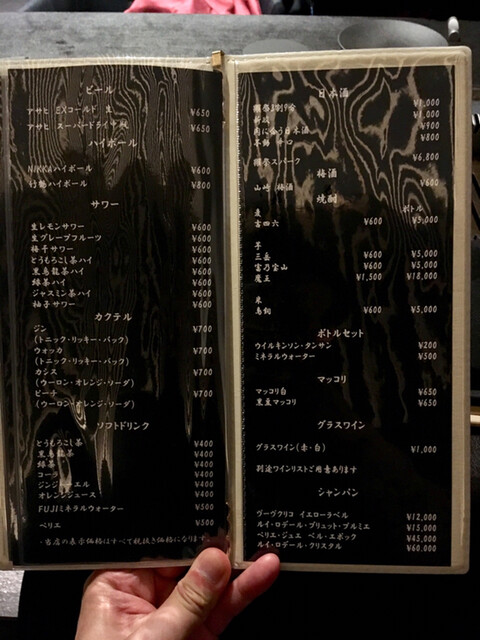 ビール
アサヒ EXコールド 生 ¥650
アサヒ スーパードライ ¥650
ハイボール
NIKKAハイボール ¥600
ハイボール ¥800
サワー
生レモンサワー ¥600
生グレープフルーツ ¥600
梅干サワー ¥600
とうもろこし茶ハイ ¥600
黒烏龍茶ハイ ¥600
緑茶ハイ ¥600
ジャスミン茶ハイ ¥600
柚子サワー ¥600
カクテル
ジン ¥700
(トニック・リッキー・バック)
ウォッカ ¥700
(トニック・リッキー・バック)
カシス ¥700
(ウーロン・オレンジ・ソーダ)
ピーチ ¥700
(ウーロン・オレンジ・ソーダ)
ソフトドリンク
とうもろこし茶 ¥400
黒烏龍茶 ¥400
緑茶 ¥400
コーラ ¥400
ジンジャーエール ¥400
オレンジジュース ¥400
FUJIミネラルウォーター ¥500
ペリエ ¥500
・当店の表示価格はすべて税抜き価格になります。
日本酒
獺祭 ¥1,000
¥1,000
肉に合う日本酒 ¥900
辛口 ¥800
獺祭スパーク ¥6,800
梅酒
山崎 梅酒 ¥600
焼酎
ボトル
麦
吉四六 ¥600 ¥5,000
芋
三岳 ¥600 ¥5,000
富乃宝山 ¥600 ¥5,000
魔王 ¥1,500 ¥18,000
米
鳥飼 ¥600 ¥5,000
ボトルセット
ウイルキンソン・タンサン ¥200
ミネラルウォーター ¥500
マッコリ
マッコリ白 ¥650
黒豆マッコリ ¥650
グラスワイン
グラスワイン(赤・白) ¥1,000
別途ワインリストご用意あります
シャンパン
ヴーヴクリコ イエローラベル ¥12,000
ルイ・ロデール・ブリュット・プルミエ ¥15,000
ペリエ・ジュエ ベル・エポック ¥45,000
ルイ・ロデール・クリスタル ¥60,000